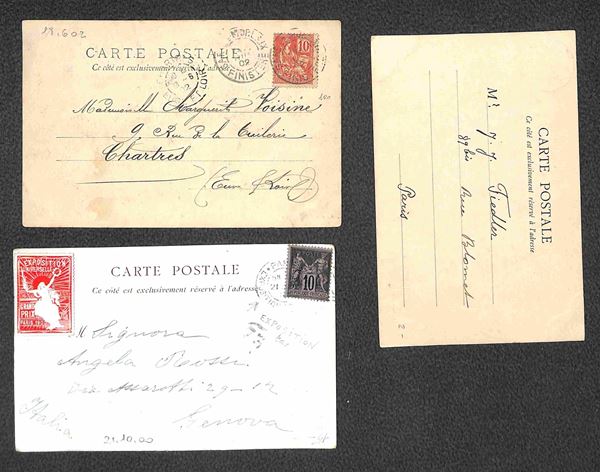 18.602
CARTE POSTALE
Ce côté est exclusivement réservé
MORLAIX
FINISTERE
10
Mademoiselle Marguerite Voisine
9 Rue de la Tuilerie
Chartres
(Eure & Loir)
EXPOSITION
UNIVERSELLE
GRAND
PRIX
PARIS
CARTE POSTALE
Ce côté est exclusivement réservé à l'adresse
10
EXPOSITION
M Signora
Angela Rossi
Via Assarotti 29-12
Genova
Italia
21.10.00
CARTE POSTALE
Ce côté est exclusivement réservé à l'adresse
Mr. J. J. Fiedler
89 bis Rue Blomet
Paris
2-